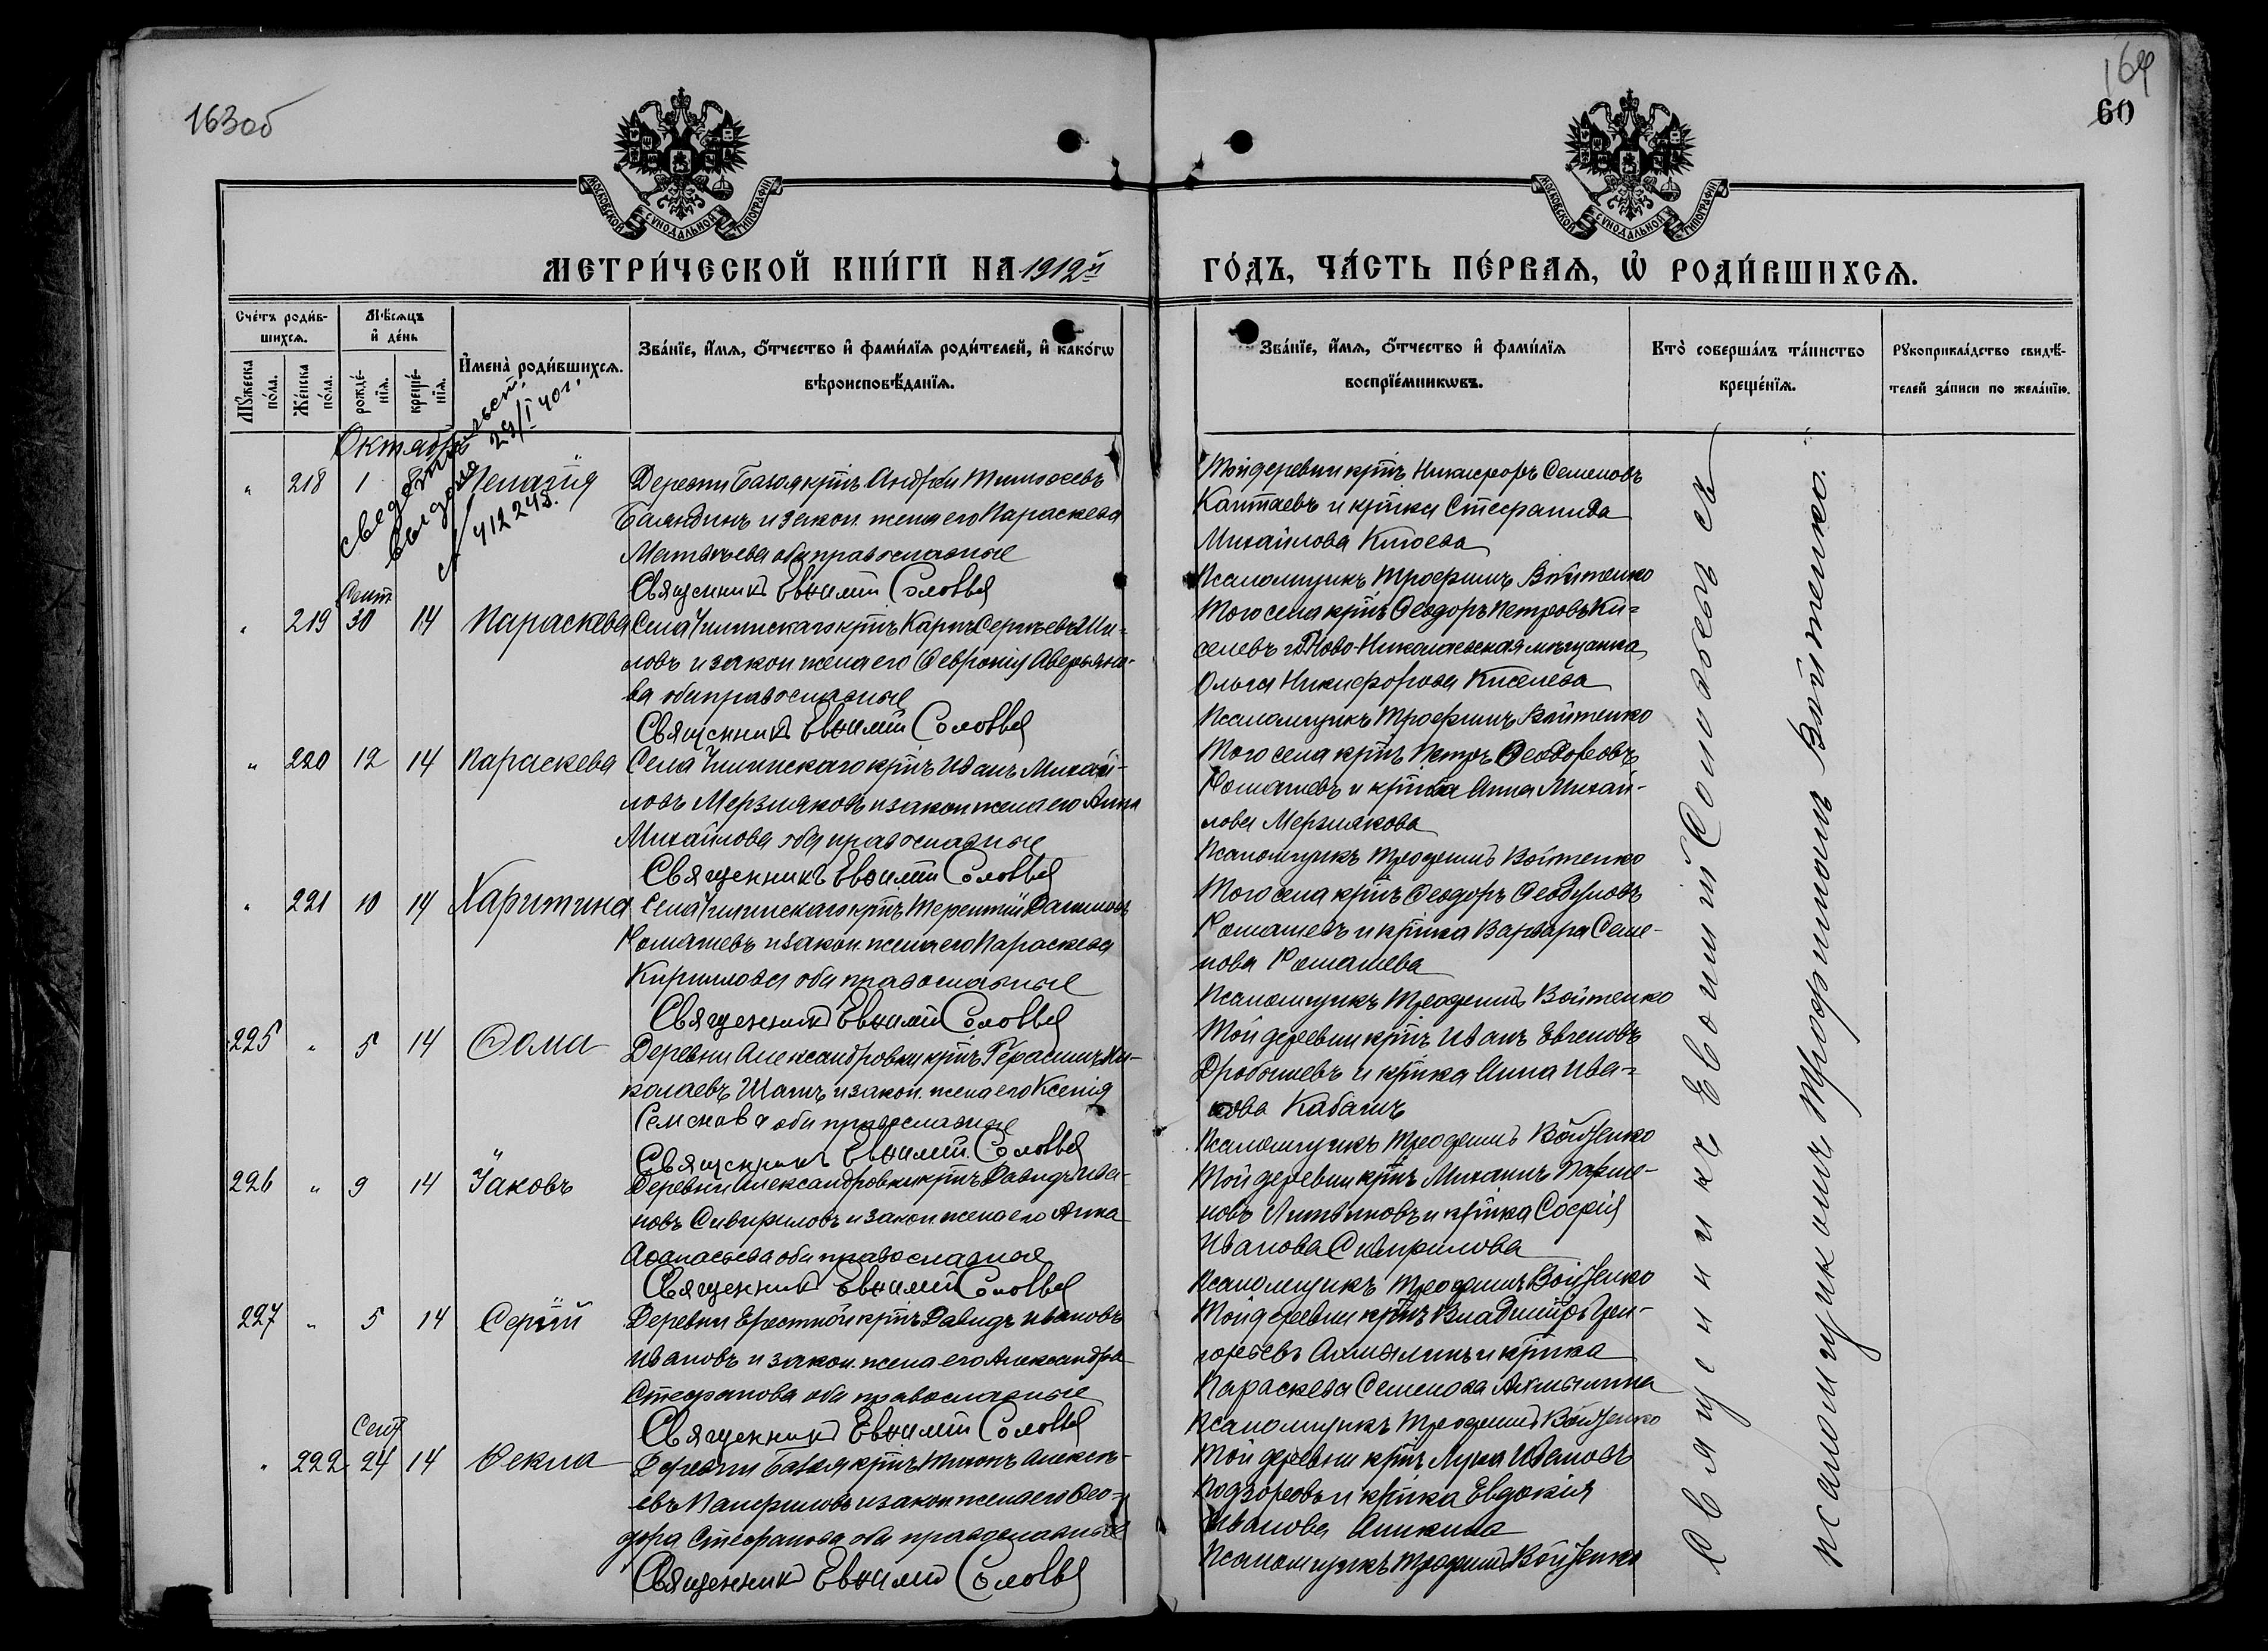 163об
164
60
МОСКОВСКОЙ СУНОДАЛЬНОЙ ТИПОГРАФІИ
МОСКОВСКОЙ СУНОДАЛЬНОЙ ТИПОГРАФІИ
МЕТРИ́ЧЕСКОЙ КНИ́ГИ НА 1912й
ГО́ДЪ, ЧА́СТЬ ПЕ́РВАЯ, Ѡ҆ РОДИ́ВШИХСЯ.
Сче́тъ роди́в-
шихся.
Мꙋ́жеска по́ла.
Же́нска по́ла.
Мѣ́сяцъ
и҆ де́нь
рожде́-
нїя.
креще́-
нїя.
И҆мена̀ роди́вшихся.
Зва́нїе, и҆́мя, ѻ҆́тчество и҆ фами́лїя роди́телей, и҆ како́гѡ
вѣроисповѣ́данїя.
Зва́нїе, и҆́мя, ѻ҆́тчество и҆ фами́лїя
воспрїе́мникѡвъ.
Кто̀ соверша́лъ та́инство
креще́нїя.
Рꙋкоприкла́дство свидѣ́-
телей за́писи по жела́нїю.
Октябрь
выдано 29/I 40г.
№ 412248.
" 218 1 Пелагія
Деревни Базоя крнъ Андрей Тимофеевъ
Баландинъ и закон. жена его Параскева
Матвѣева оба православные
Священникъ Евѳимій Соловьев
Той деревни крнъ Никифоръ Семеновъ
и крнка Стефанида
Михайлова
Псаломщикъ Трофимъ Войтенко
Сент
" 219 30 14 Параскева
Села крнъ Карпъ Сергѣевъ Ши-
ловъ и закон жена его Февронія Аверьяно-
ва оба православные
Священникъ Евѳимій Соловьев
Того села крнъ Ѳеодоръ Петровъ Ки-
селевъ и Ново-Николаевская мѣщанка
Ольга Никифорова Киселева
Псаломщикъ Трофимъ Войтенко
" 220 12 14 Параскева
Села крнъ Иванъ Михай-
ловъ Мерзляковъ и закон жена его Анна
Михайлова оба православные
Священникъ Евѳимій Соловьев
Того села крнъ Петръ Ѳеодоровъ
Ромашевъ и крнка Анна Михай-
лова Мерзлякова
Псаломщикъ Трофимъ Войтенко
" 221 10 14 Харитина
Села крнъ Терентій Даниловъ
Ромашевъ и закон. жена его Параскева
Кириллова оба православные
Священникъ Евѳимій Соловьев
Того села крнъ Ѳеодоръ
Ромашевъ и крнка Варвара Семе-
нова Ромашева
Псаломщикъ Трофимъ Войтенко
225 " 5 14 Ѳома
Деревни Александровки крнъ Герасимъ Ни-
колаевъ и закон. жена его Ксенія
Семенова оба православные
Священникъ Евѳимій Соловьев
Той деревни крнъ Иванъ
Дробышевъ и крнка Анна Ива-
нова Кабашъ
Псаломщикъ Трофимъ Войтенко
226 " 9 14 Іаковъ
Деревни Александровки крнъ Давидъ Ива-
новъ и закон жена его Анна
Аѳанасьева оба православные
Священникъ Евѳимій Соловьев
Той деревни крнъ Михаилъ Парѳе-
новъ Литвиновъ и крнка Софія
Иванова
Псаломщикъ Трофимъ Войтенко
227 " 5 14 Сергій
Деревни Ерестной крнъ Давидъ Ивановъ
Ивановъ и закон. жена его Александра
Стефанова оба православные
Священникъ Евѳимій Соловьев
Той деревни крнъ Владиміръ Гри-
горьевъ и крнка
Параскева Семенова
Псаломщикъ Трофимъ Войтенко
Сент
" 222 24 14 Ѳекла
Деревни Базоя крнъ Тихонъ Алексѣ-
евъ Панфиловъ и закон жена его Ѳео-
дора Стефанова оба православные
Священникъ Евѳимій Соловьев
Той деревни крнъ Лука Ивановъ
Подзоровъ и крнка Евдокія
Иванова Аникина
Псаломщикъ Трофимъ Войтенко
Священникъ Евѳимій Соловьевъ съ
псаломщикомъ Трофимомъ Войтенко.